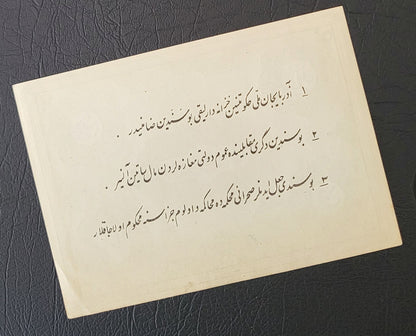 ۱ آذربایجان ملی حکومتینین خزانه دارلیقی بو سندین ضامنیدر .
۲ بو سندین دگری مقابلینده عموم دولتی مغازه لردن مال ساتین آلینیر .
۳ بو سندی جعل ایدنلر صحرائی محکمه ده محاکمه و اولوم جزاسنه محکوم اولاجاقلار